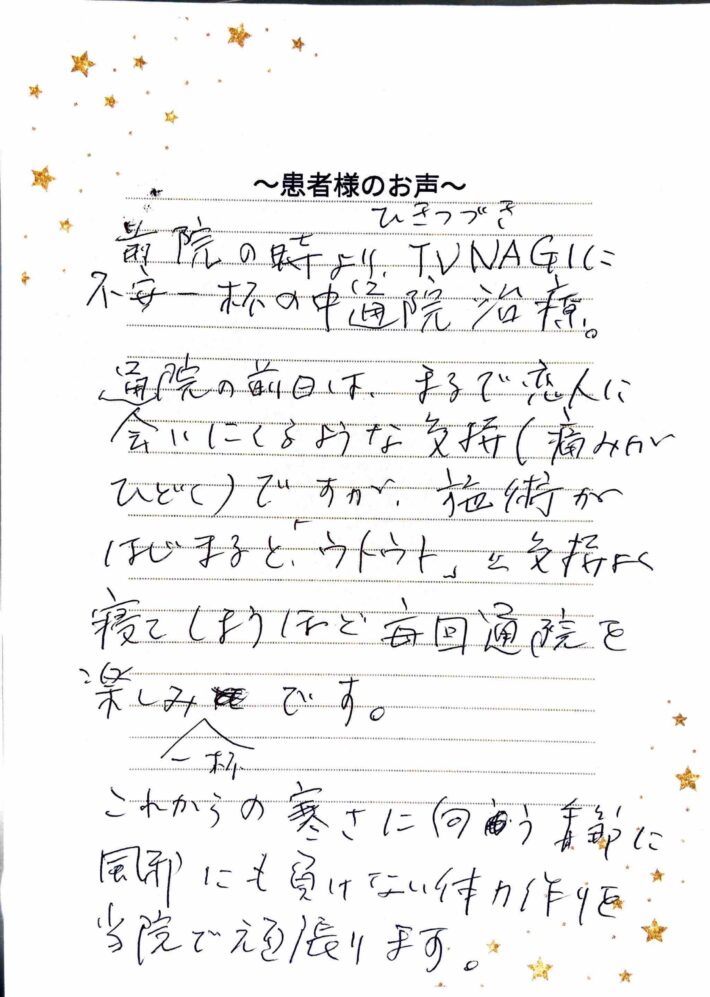 ～患者様のお声～
ひきつづき
前院の時より、TUNAGIに
不安一杯の中通院治療。
通院の前日は、まるで恋人に
会いにくるような気持(痛みが
ひどく)ですが、施術が
はじまると、「ウトウト」と気持よく
寝てしまうほど毎回通院を
楽しみです。
一杯
これからの寒さに向う季節に
風邪にも負けない体力作りを
当院で頑張ります。